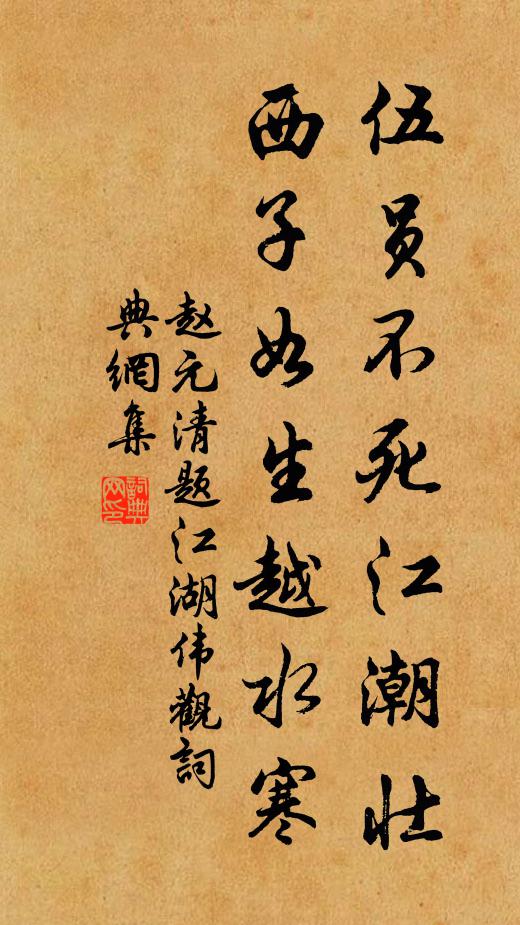 伍员不死江潮壮
西子如生越水寒
赵元清题江湖伟觀詞
典網集
詞典网印